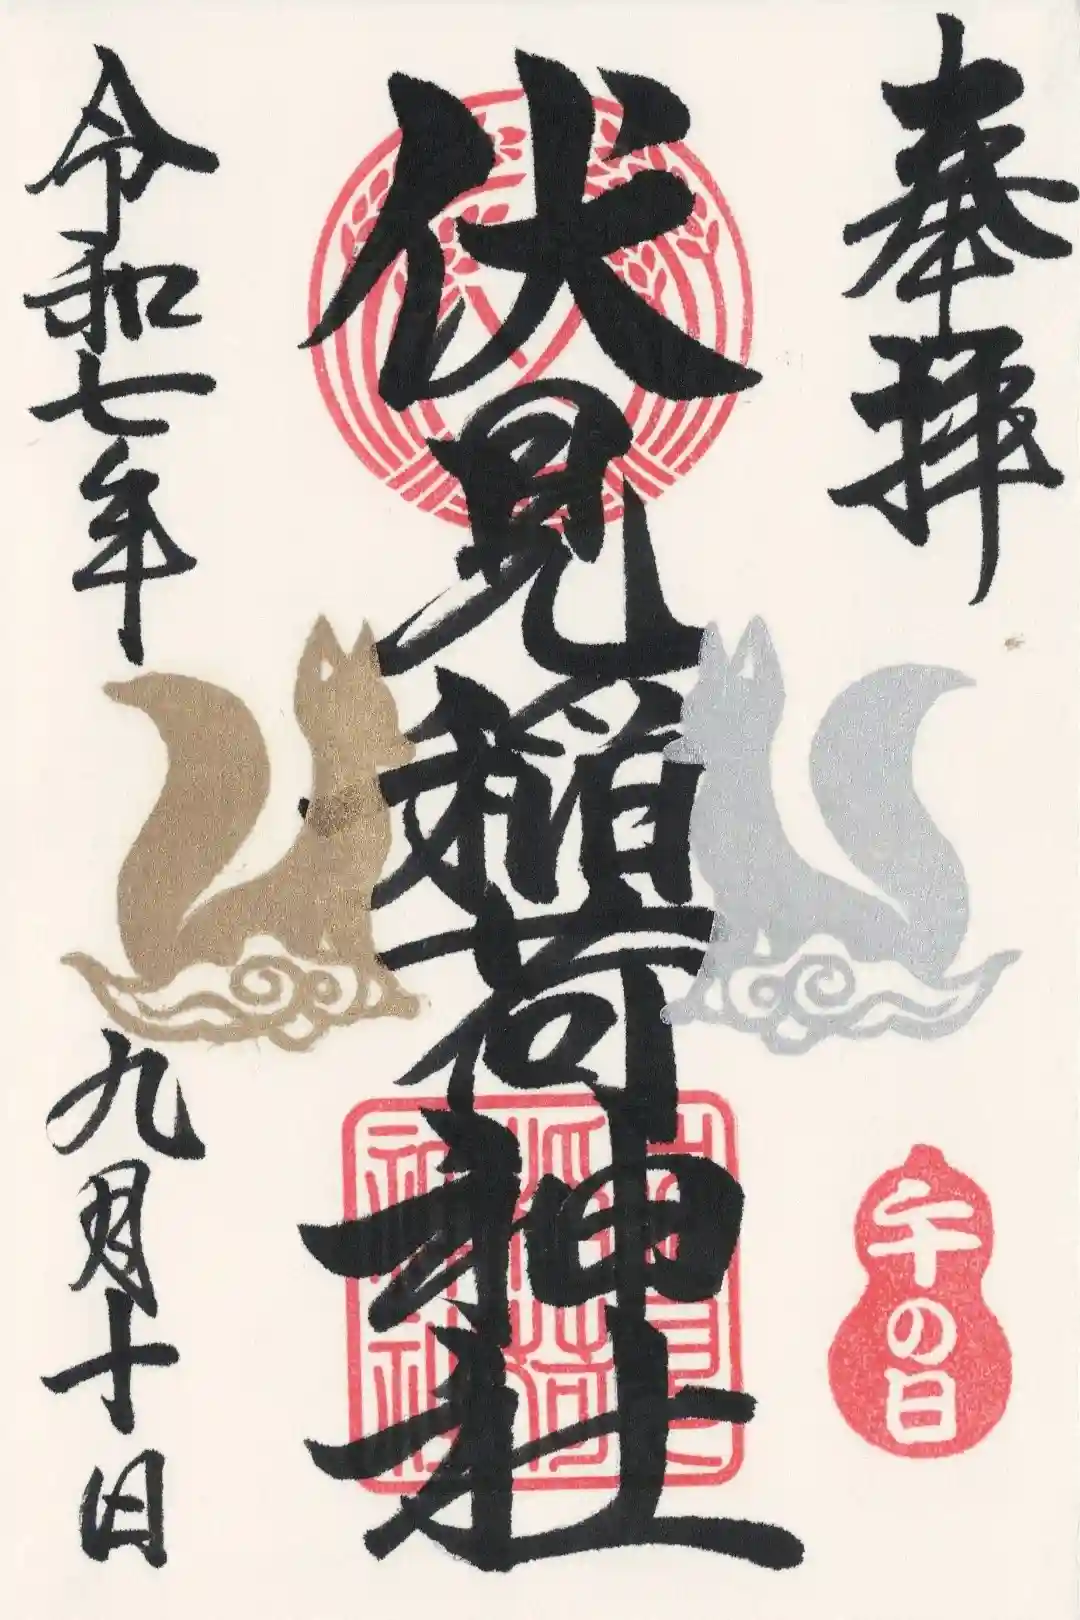 奉拝
伏見稲荷神社
令和七年九月十日
午の日